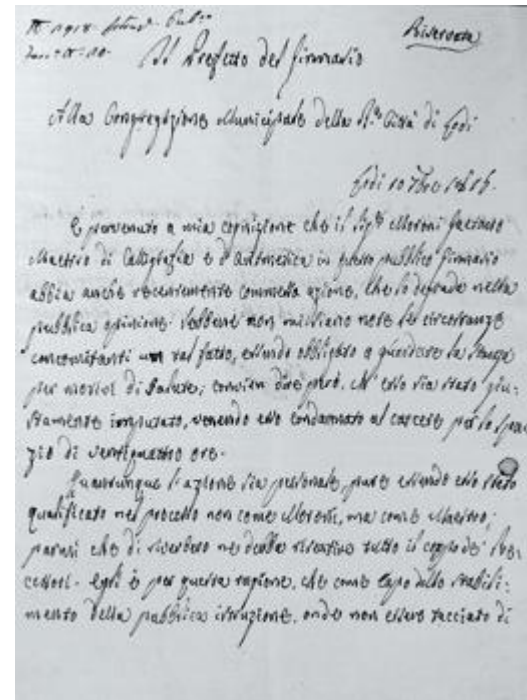 Riservata
Il Prefetto del Ginnasio
Alla Congregazione Municipale della R.a Città di Lodi
Lodi 10 7bre 1816.
È pervenuto a mia cognizione che il Sig.r Moroni Gaetano
Maestro di Calligrafia e d'Aritmetica in questo pubblico Ginnasio
abbia anche recentemente commessa azione, che lo degrada nella
pubblica opinione. Sebbene non mi siano note le circostanze
concomitanti un tal fatto, essendo obbligato a guardare la stanza
per motivi di Salute; convien dire però, ch'esso sia stato giu-
stamente imputato, venendo esso condannato al carcere per lo spa-
zio di ventiquattro ore.
Quantunque l'azione sia personale, pure essendo esso stato
qualificato nel processo non come Moroni, ma come Maestro,
parmi che di riverbero ne debba risentire tutto il corpo de'
egli è per questa ragione, che come capo dello stabili-
mento della pubblica istruzione, onde non essere tacciato di